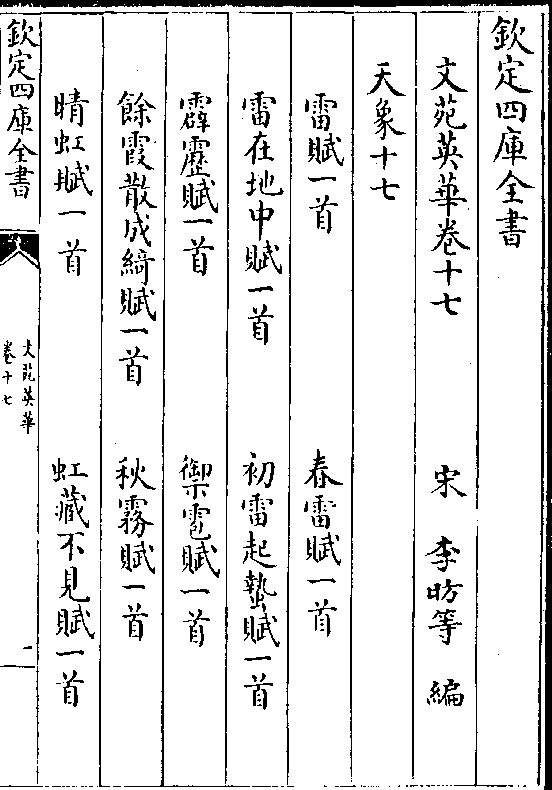 欽定四庫全書
文苑英華卷十七 宋 李昉等 編
天象十七
雷賦一首 春雷賦一首
雷在地中賦一首 初雷起蟄賦一首
霹靂賦一首 禦雹賦一首
餘霞散成綺賦一首 秋霧賦一首
晴虹賦一首 虹藏不見賦一首
欽定四庫全書
文苑英華
卷十七
一